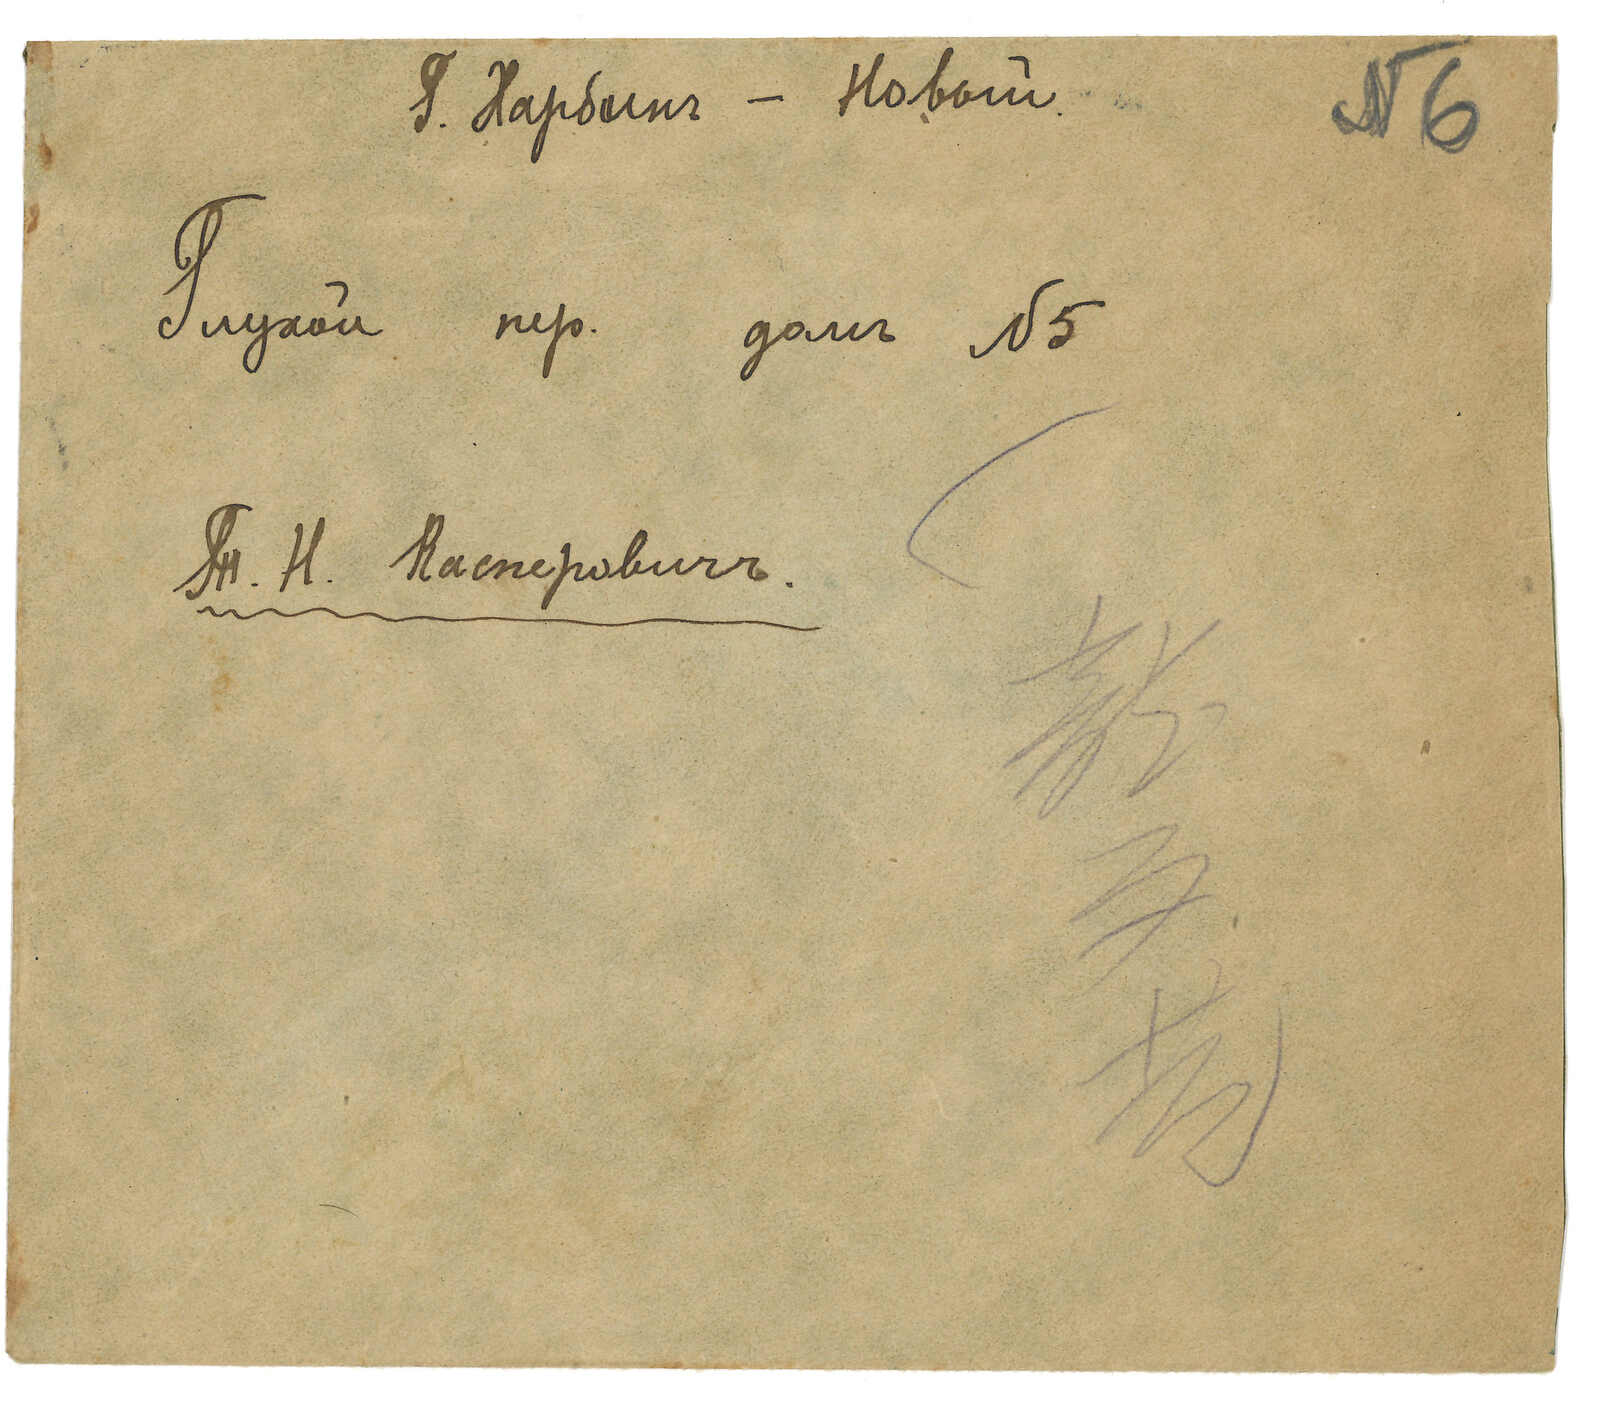 Г. Харбинъ – Новый.
№ 6
Глухой пер. домъ № 5
Т. Н. Касперовичъ.